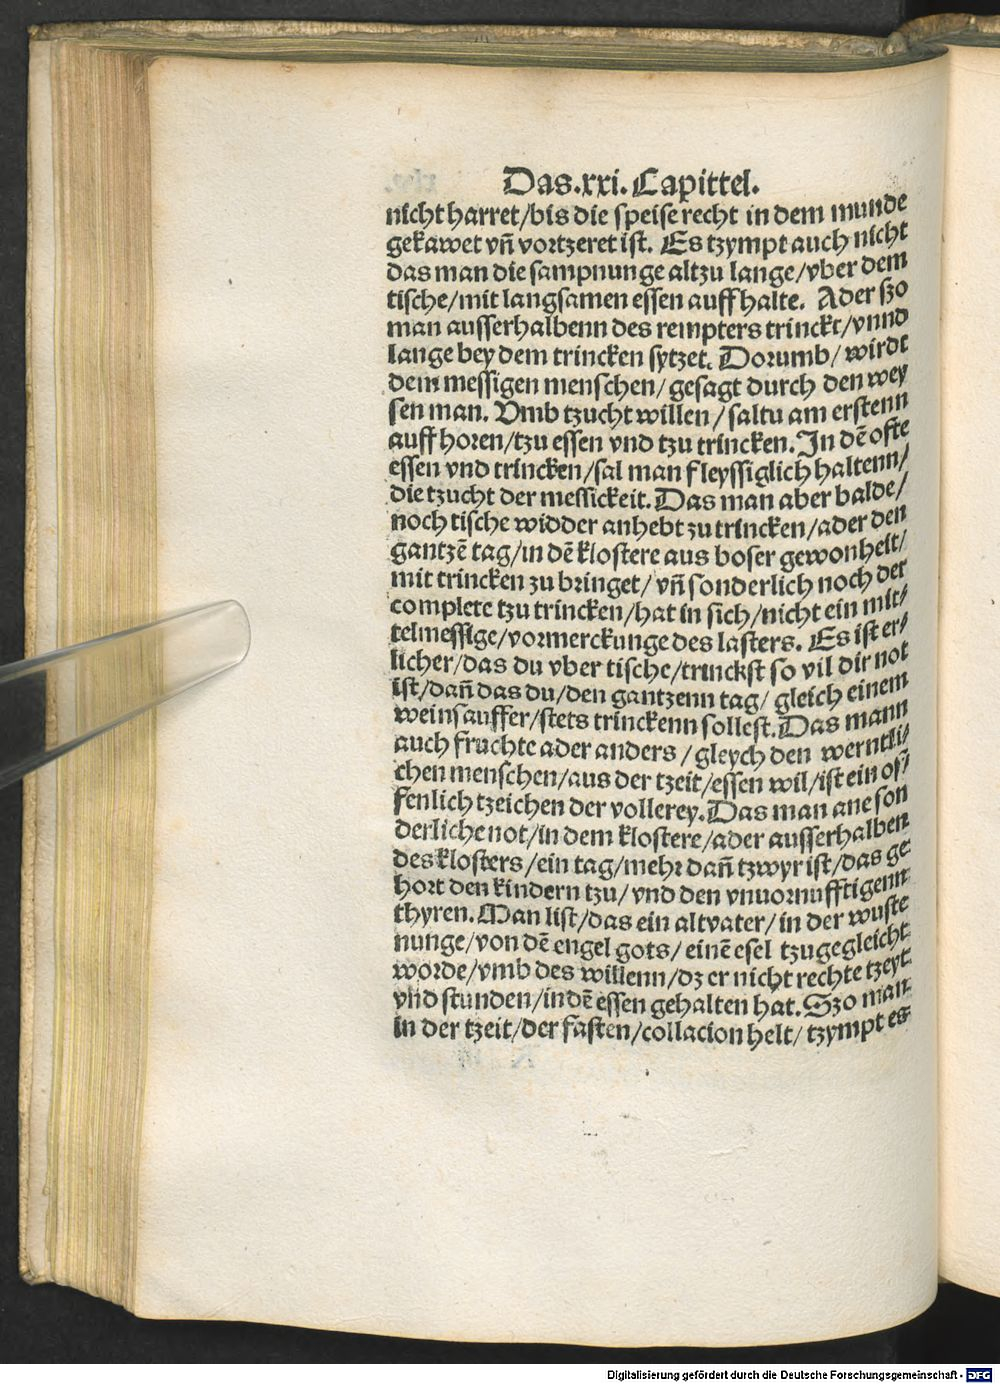 Das.xxi. Capittel.
nicht harret/bis die speise recht in dem munde
gekawet vñ vortzeret ist. Es tzympt auch nicht
das man die sampnunge altzu lange/vber dem
tische/mit langsamen essen auff halte. Ader szo
man ausserhalbenn des rempters trinckt/vnnd
lange bey dem trincken sytzet. Dorumb/ wirdt
dem messigen menschen/ gesagt durch den wey
sen man. Vmb tzucht willen/ saltu am erstenn
auff horen/tzu essen vnd tzu trincken. In dẽ ofte
essen vnd trincken/sal man fleyssiglich haltenn/
die tzucht der messickeit. Das man aber balde/
noch tische widder anhebt zu trincken/ader den
gantzẽ tag/in dẽ klostere aus boser gewonheit/
mit trincken zu bringet/ vñ sonderlich noch der
complete tzu trincken/hat in sich/nicht ein mit/
telmessige/vormerckunge des lasters. Es ist er/
licher/das du vber tische/trinckst so vil dir not
ist/dañ das du/den gantzenn tag/ gleich einem
weinsauffer/stets trinckenn sollest. Das mann
auch fruchte ader anders/ gleych den werntli/
chen menschen/aus der tzeit/essen wil/ist ein of/
fenlich tzeichen der vollerey. Das man ane son
derliche not/in dem klostere/ader ausserhalben
des klosters/ein tag/mehr dañ tzwyr ist/das ge
hort den kindern tzu/ vnd den vnuornufftigenn
thyren. Man list/das ein altvater/ in der wuste
nunge/von dẽ engel gots/ einẽ esel tzugegleicht
worde/vmb des willenn/dz er nicht rechte tzeyt
vnd stunden/in dẽ essen gehalten hat. Szo man
in der tzeit/der fasten/collacion helt/ tzympt es
Digitalisierung gefördert durch die Deutsche Forschungsgemeinschaft - DFG